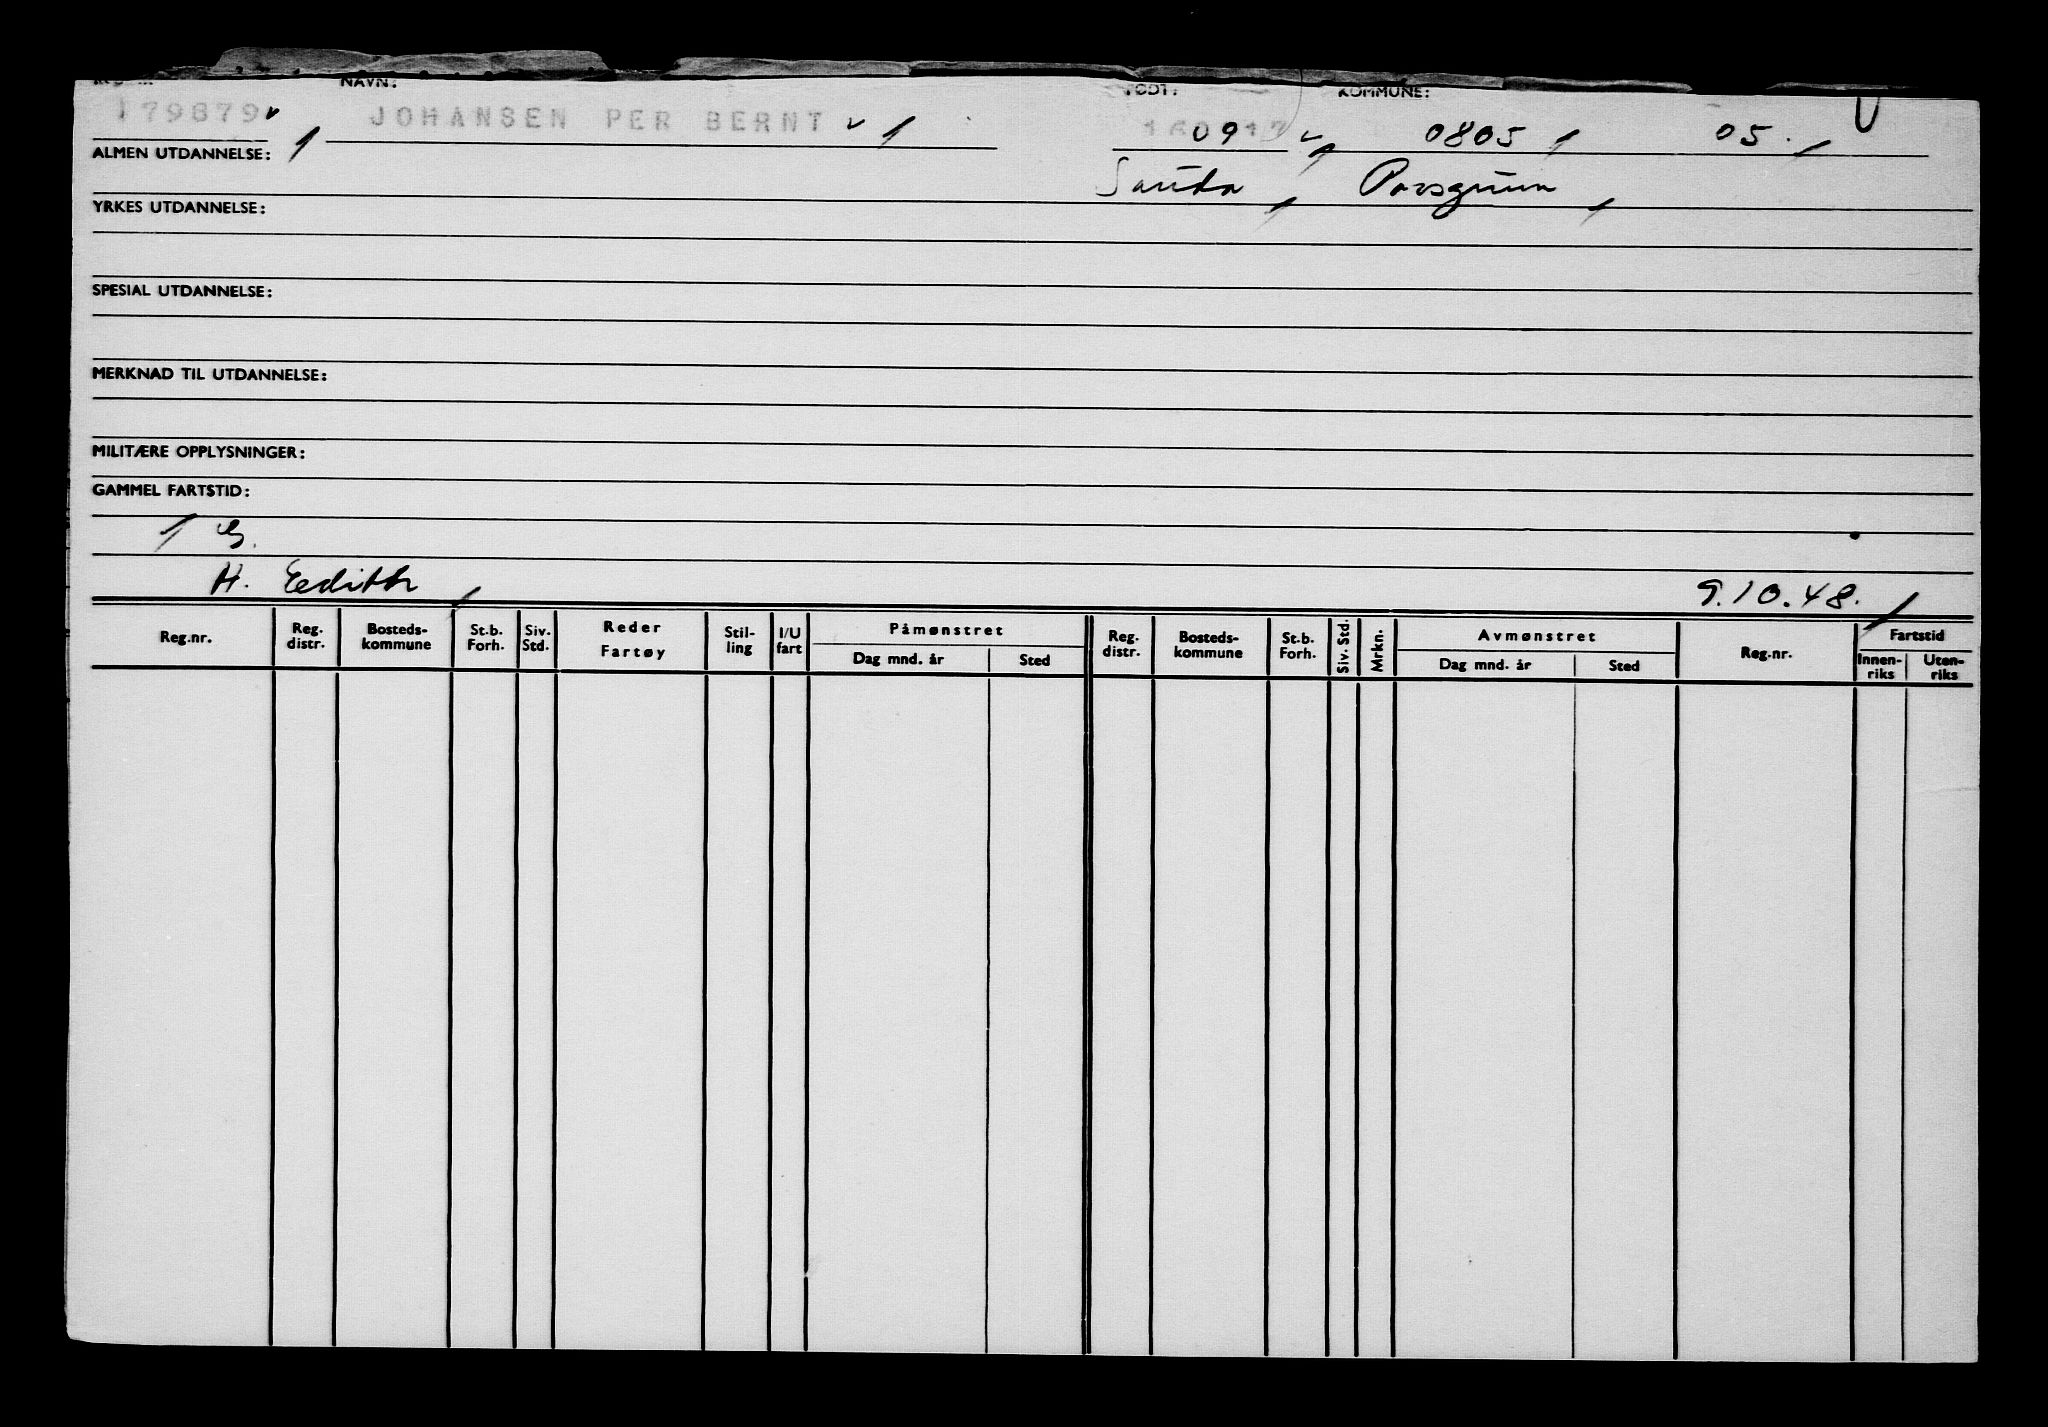 NAVN: KOMMUNE:
179879 JOHANSEN PER BERNT 160917 09 0805 05. U
ALMEN UTDANNELSE:
Porsgrunn
YRKES UTDANNELSE:
SPESIAL UTDANNELSE:
MERKNAD TIL UTDANNELSE:
MILITÆRE OPPLYSNINGER:
GAMMEL FARTSTID:
G.
H. Eedith 9.10.48.
Reg.nr. Reg. distr. Bosteds- kommune St.b. Forh. Siv. Std. Reder Fartøy Stil- ling I/U fart Påmønstret Dag mnd. år Sted Reg. distr. Bosteds- kommune St.b. Forh. Siv. Std. Mrkn. Avmønstret Dag mnd. år Sted Reg.nr. Fartstid Innen- riks Uten- riks